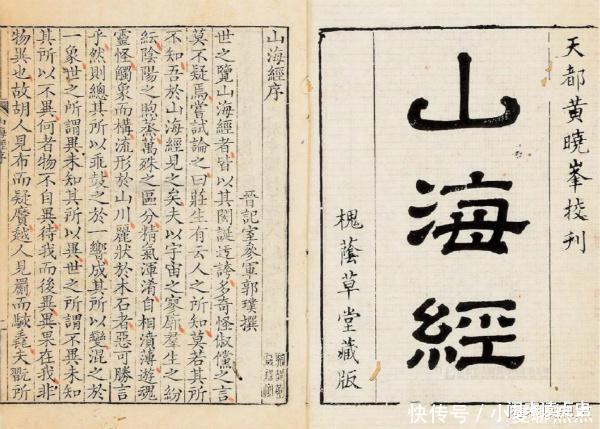 天都黃曉峯挍刊
山海經
槐蔭草堂藏版
山海經序
晉記室參軍郭璞撰
世之覽山海經者皆以其閎誕迂誇多奇怪俶儻之言
莫不疑焉嘗試論之曰莊生有云人之所知莫若其所
不知吾於山海經見之矣夫以宇宙之寥廓羣生之紛
紜陰陽之煦蒸萬殊之區分精氣渾淆自相濆薄遊魂
靈怪觸象而構流形於山川麗狀於木石者惡可勝言
乎然則總其所以乖鼓之於一響成其所以變混之於
一象世之所謂異未知其所以異世之所謂不異未知
其所以不異何者物不自異待我而後異異果在我非
物異也故胡人見布而疑黂越人見罽而駭毳夫翫所
山海經序
快传号/小